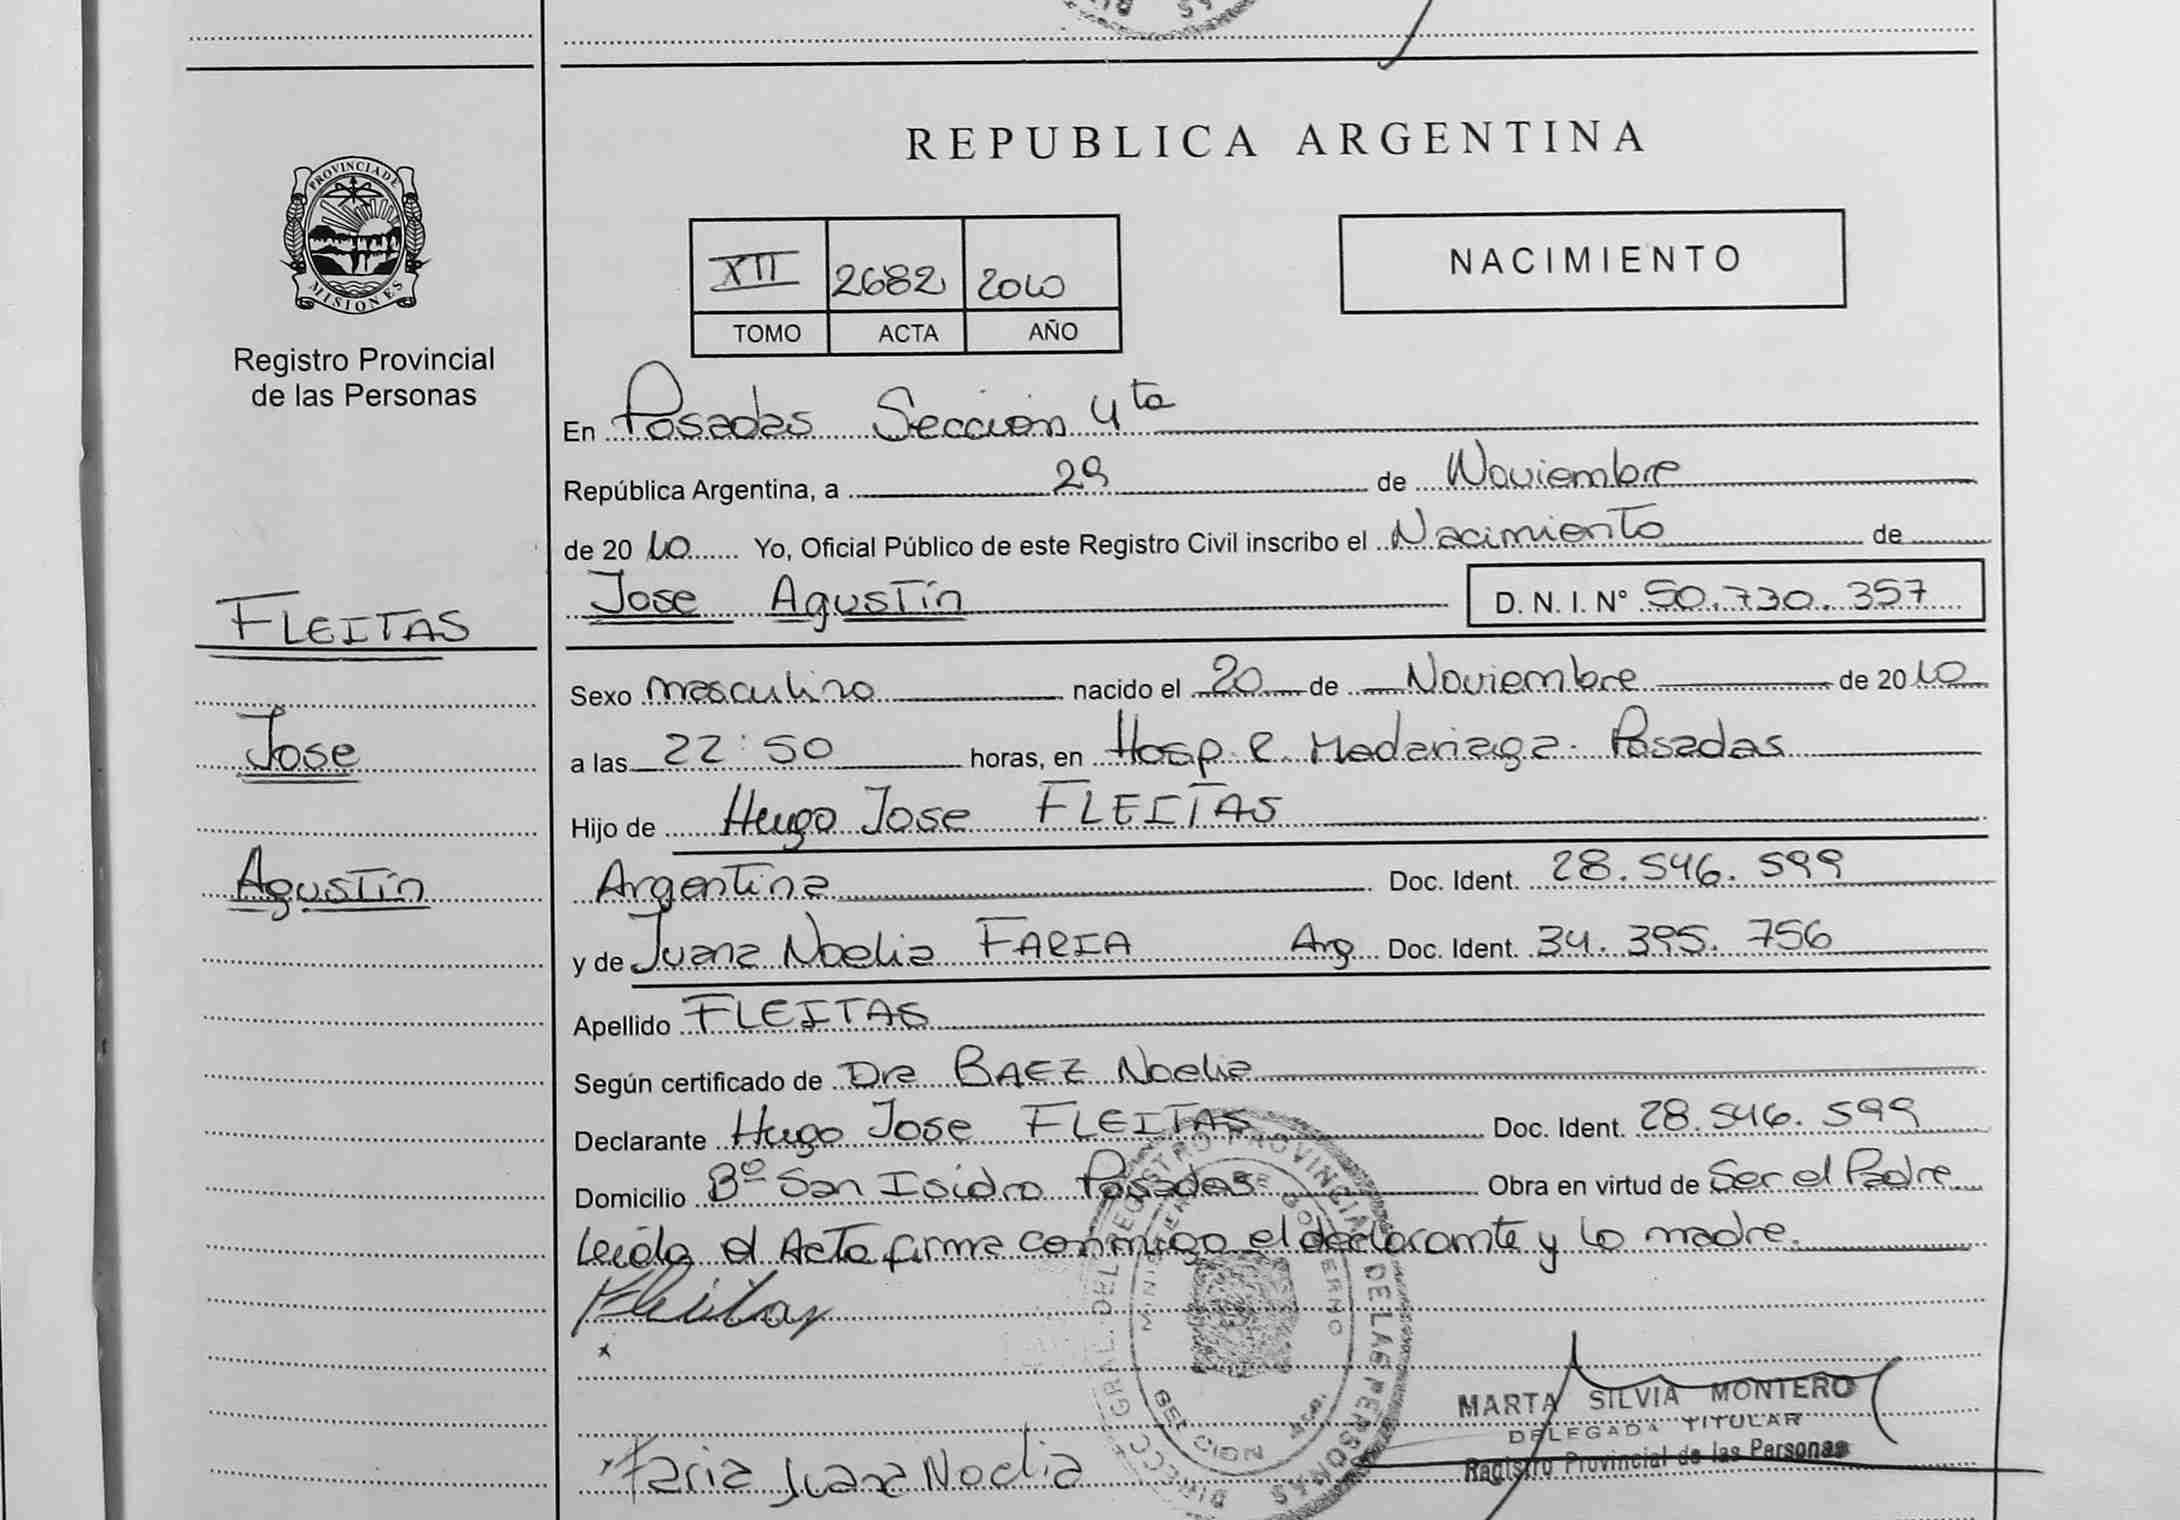 REPUBLICA ARGENTINA
PROVINCIA DE
MISIONES
Registro Provincial
de las Personas
XII 2682 2010
TOMO ACTA AÑO
NACIMIENTO
En Posadas Sección 4ta
República Argentina, a 29 de Noviembre
de 2010 Yo, Oficial Público de este Registro Civil inscribo el Nacimiento de
Jose Agustín D. N. I. Nº 50.730.357
FLEITAS
Jose
Agustín
Sexo masculino nacido el 20 de Noviembre de 2010
a las 22:50 horas, en Hosp. R. Madariaga. Posadas
Hijo de Hugo Jose FLEITAS
Argentina Doc. Ident. 28.546.599
y de Juana Noelia FARIA Arg Doc. Ident. 34.395.756
Apellido FLEITAS
Según certificado de Dra BAEZ Noelia
Declarante Hugo Jose FLEITAS Doc. Ident. 28.546.599
Domicilio Bº San Isidro Posadas Obra en virtud de Ser el Padre
Leida el Acta firma conmigo el declarante y la madre.
Fleitas
Faria Juana Noelia
GRAL. DEL REGISTRO PROVINCIAL DE LAS PERSONAS
MINISTERIO DE GOBIERNO
MARTA SILVIA MONTERO
DELEGADA TITULAR
Registro Provincial de las Personas